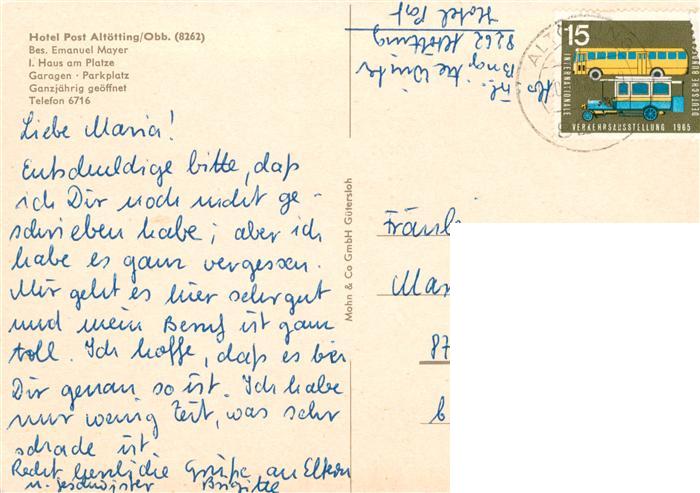 Hotel Post Altötting/Obb. (8262)
Bes. Emanuel Mayer
I. Haus am Platze
Garagen · Parkplatz
Ganzjährig geöffnet
Telefon 6716
Liebe Maria!
Entschuldige bitte, daß
ich Dir noch nicht ge-
schrieben habe; aber ich
habe es ganz vergessen.
Mir geht es hier sehr gut
und mein Beruf ist ganz
toll. Ich hoffe, daß es bei
Dir genau so ist. Ich habe
nur wenig Zeit, was sehr
schade ist.
Recht herzliche Grüße an Eltern
u. Geschwister Brigitte
Mohn & Co GmbH Gütersloh
Brigitte
8262 Altötting
Hotel Post
15
INTERNATIONALE
VERKEHRSAUSSTELLUNG 1965
DEUTSCHE BUNDES
ALT
Fräul
Mar
87